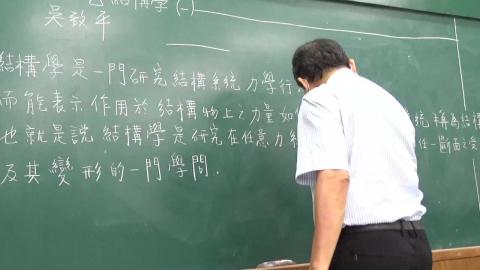 結構學(一)
吳致平
結構學是一門研究結構系統力學行
而能表示作用於結構物上之力量如 統稱為結構
也就是說結構學是研究在任意力系 任一斷面之受
及其變形的一門學問.